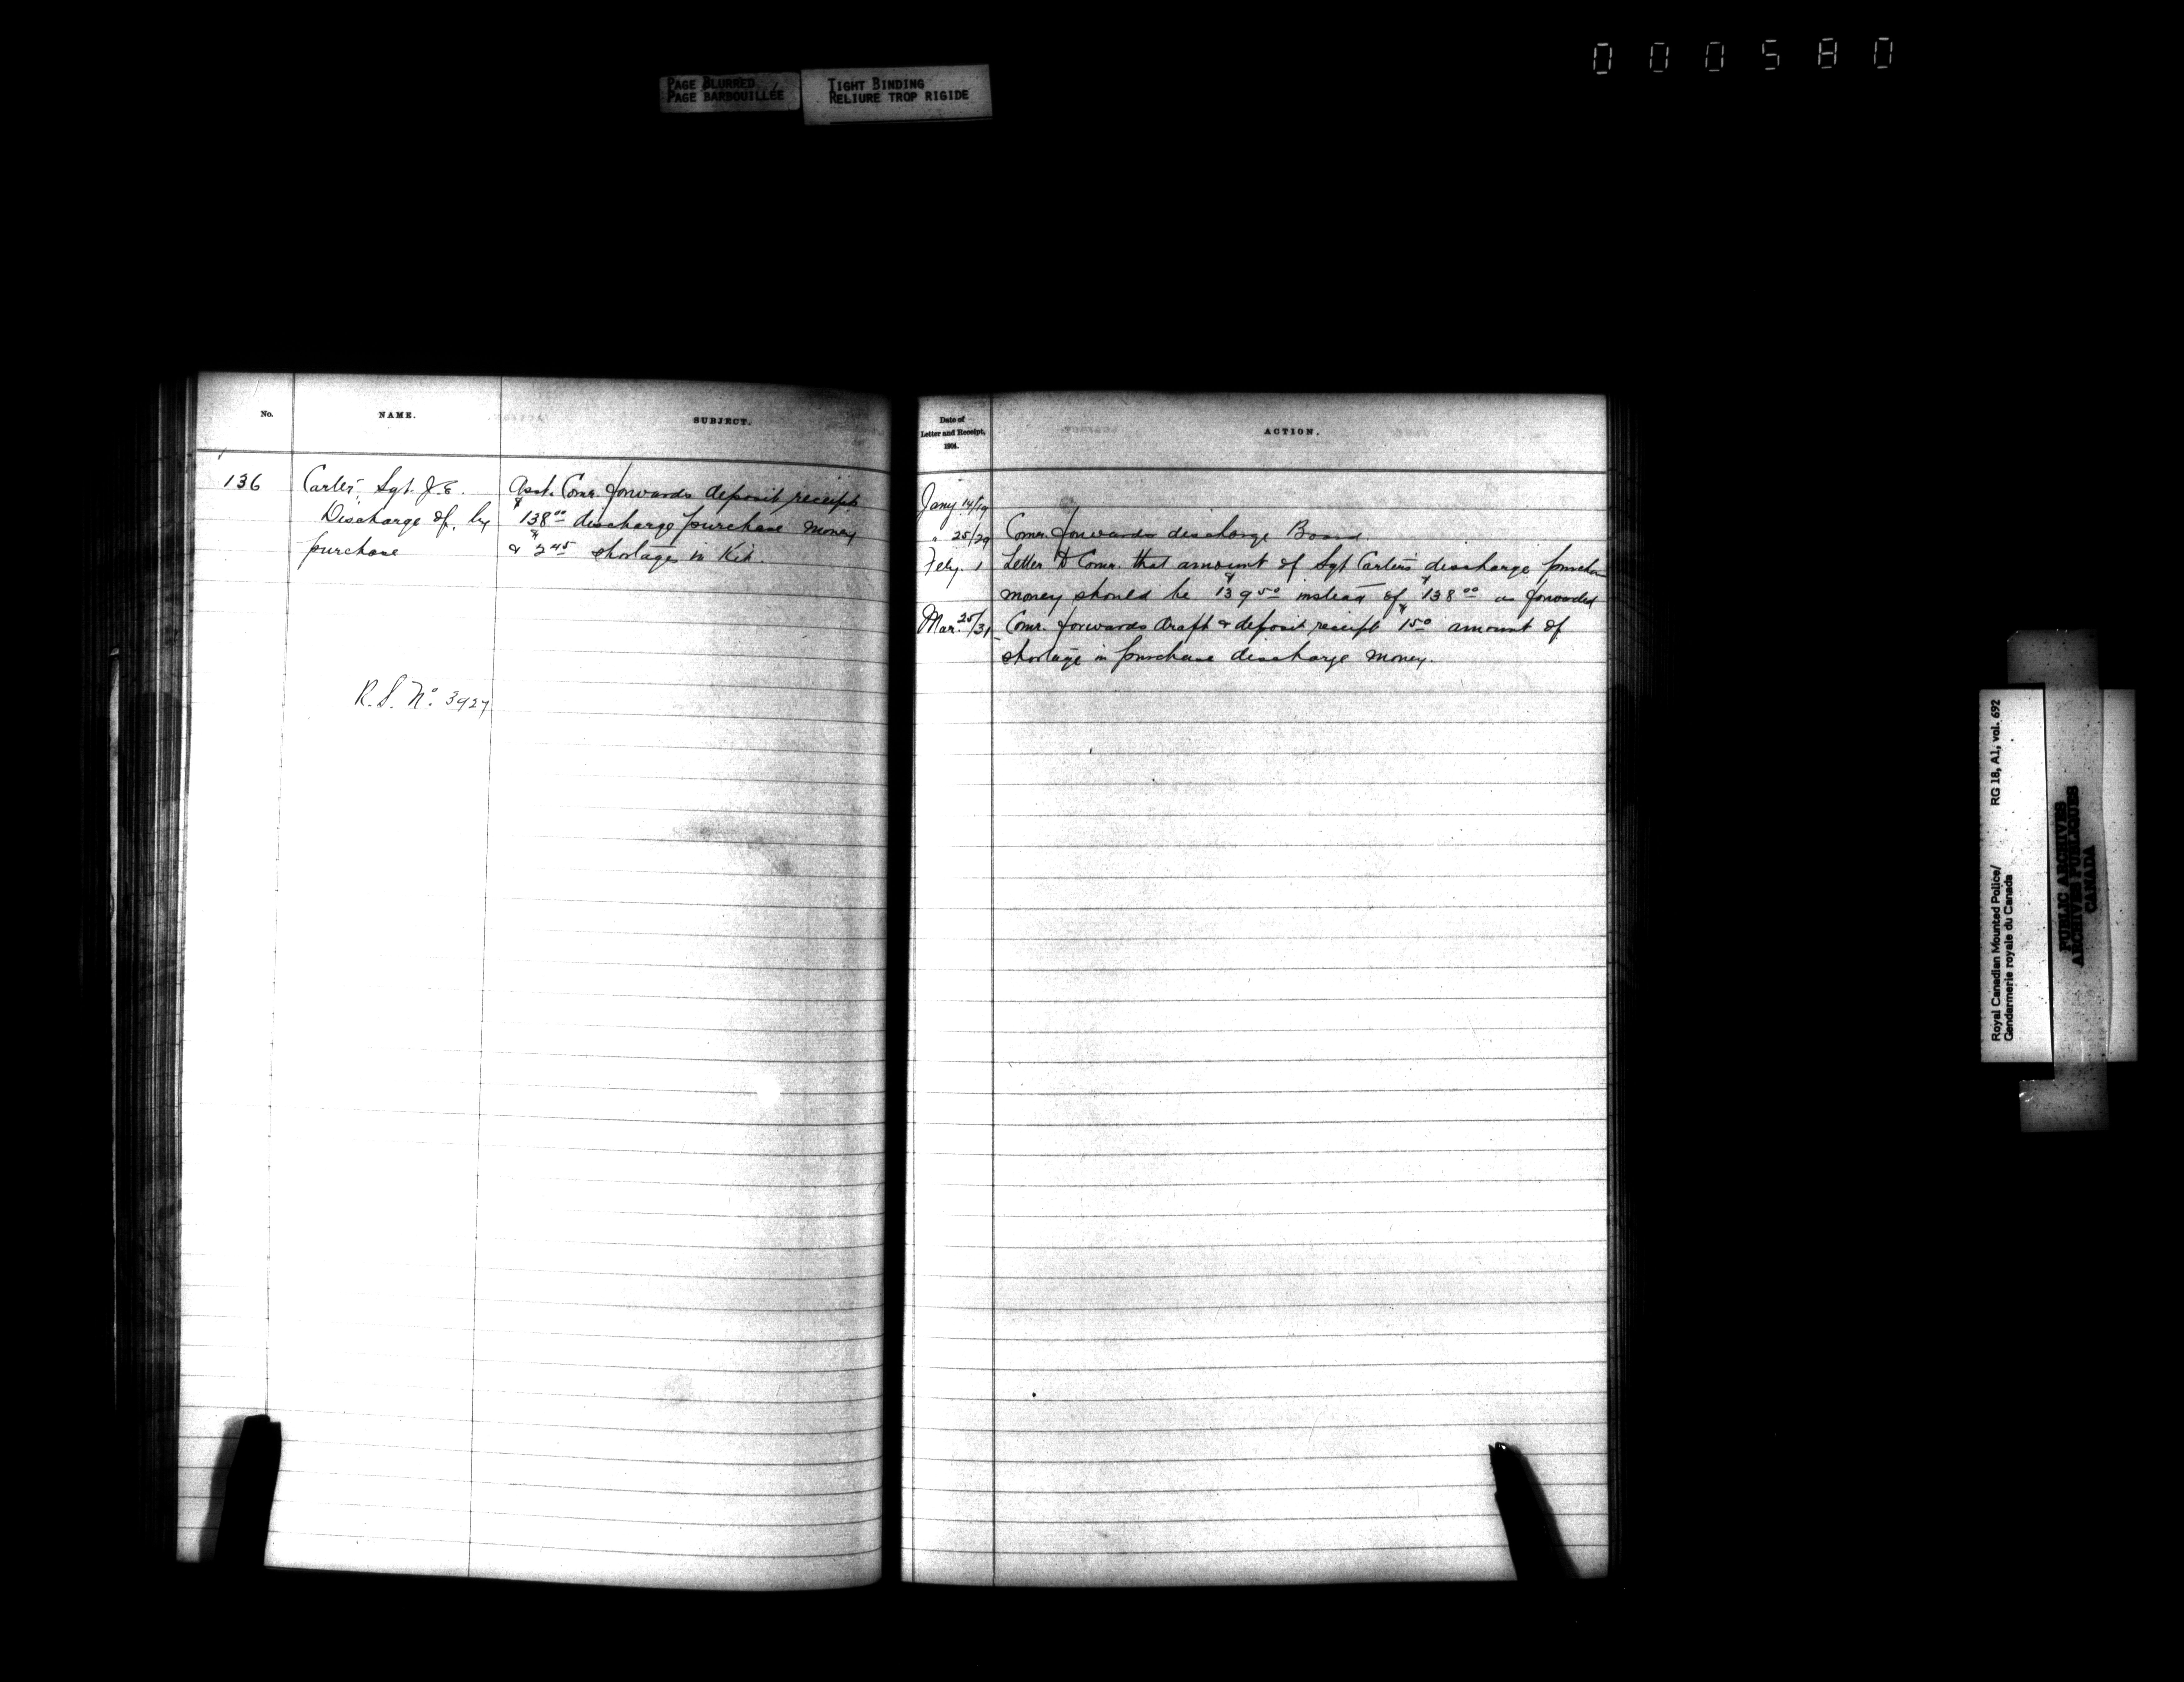 000580
PAGE BLURRED
PAGE BARBOUILLÉE
TIGHT BINDING
RELIURE TROP RIGIDE
No.
NAME.
SUBJECT.
136
Carter, Sgt. J.E.
Discharge of, by
purchase
R.S. No. 3927
Asst. Comr. forwards deposit receipts
$138.00 discharge purchase money
& $2.45 shortages in Kit.
Date of
Letter and Receipt,
1904.
ACTION.
Jany 14/19
" 25/29 Comr. forwards discharge Board
Feby. 1 Letter to Comr. that amount of Sgt Carter's discharge purchase
money should be $139.50 instead of $138.00 as forwarded
Mar. 25/31 Comr. forwards draft & deposit receipt $1.50 amount of
shortage in purchase discharge money.
Royal Canadian Mounted Police/
Gendarmerie royale du Canada
RG 18, A1, vol. 692
PUBLIC ARCHIVES
ARCHIVES PUBLIQUES
CANADA